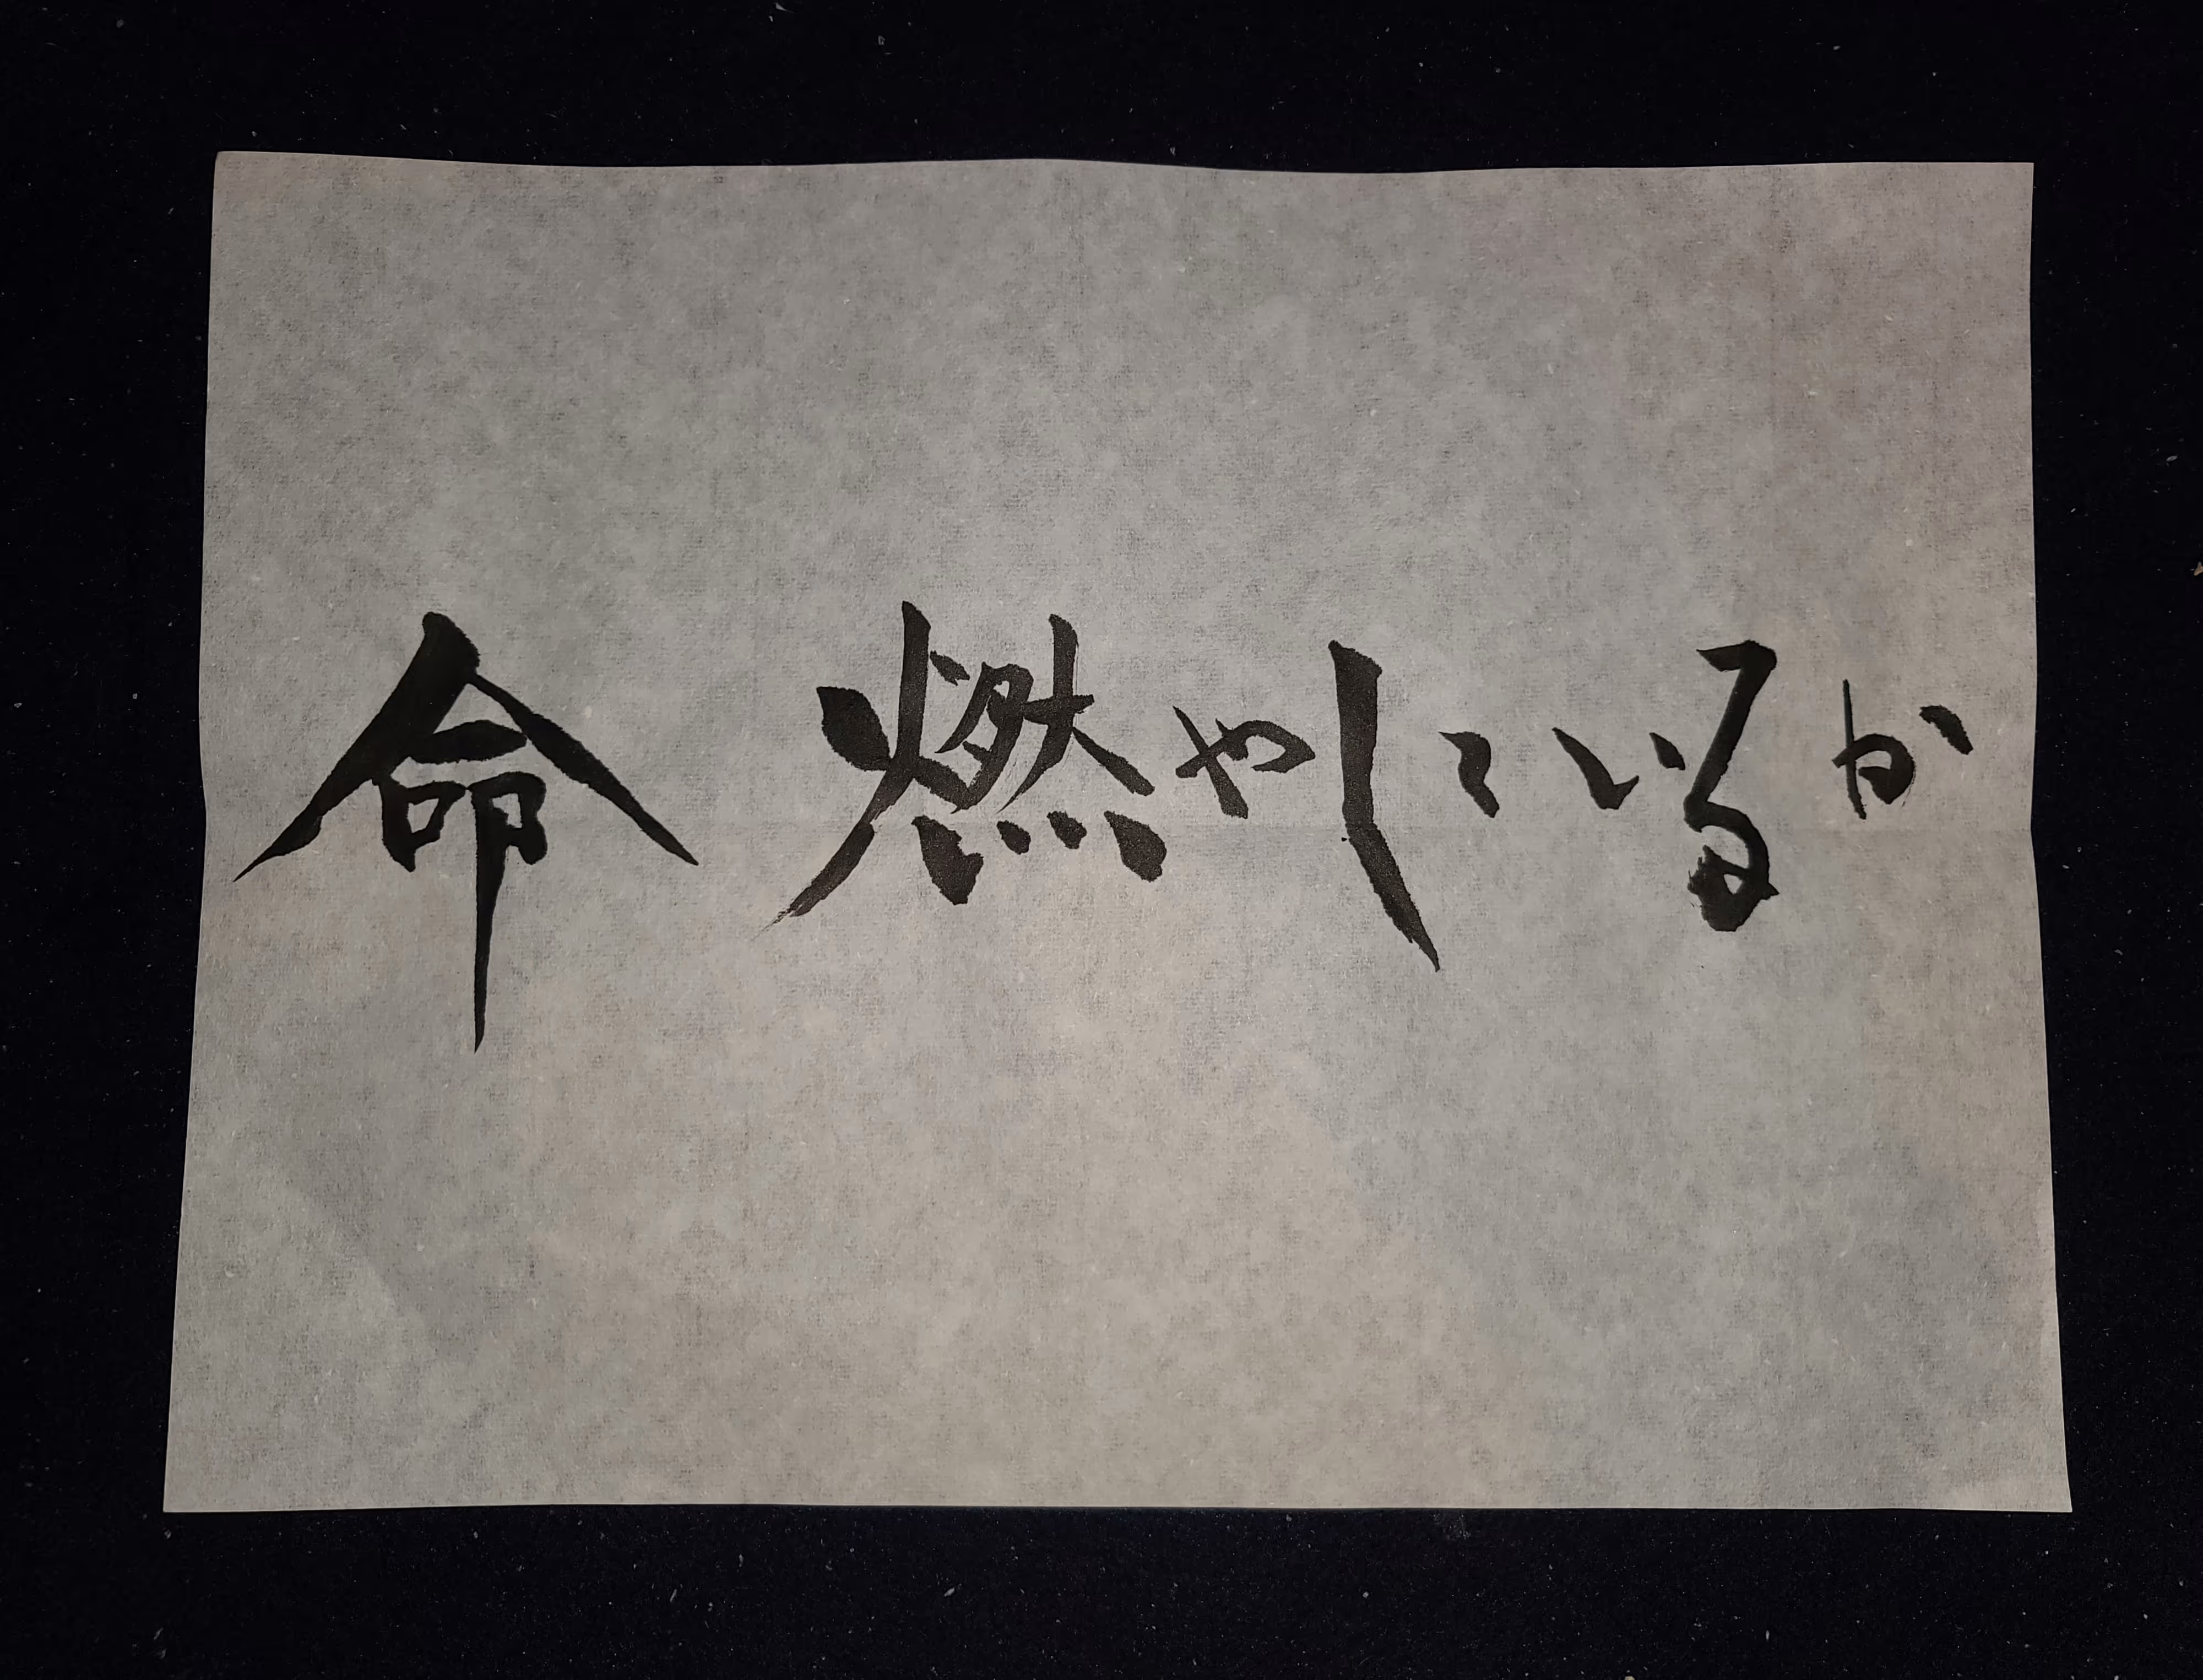 命燃やしているか